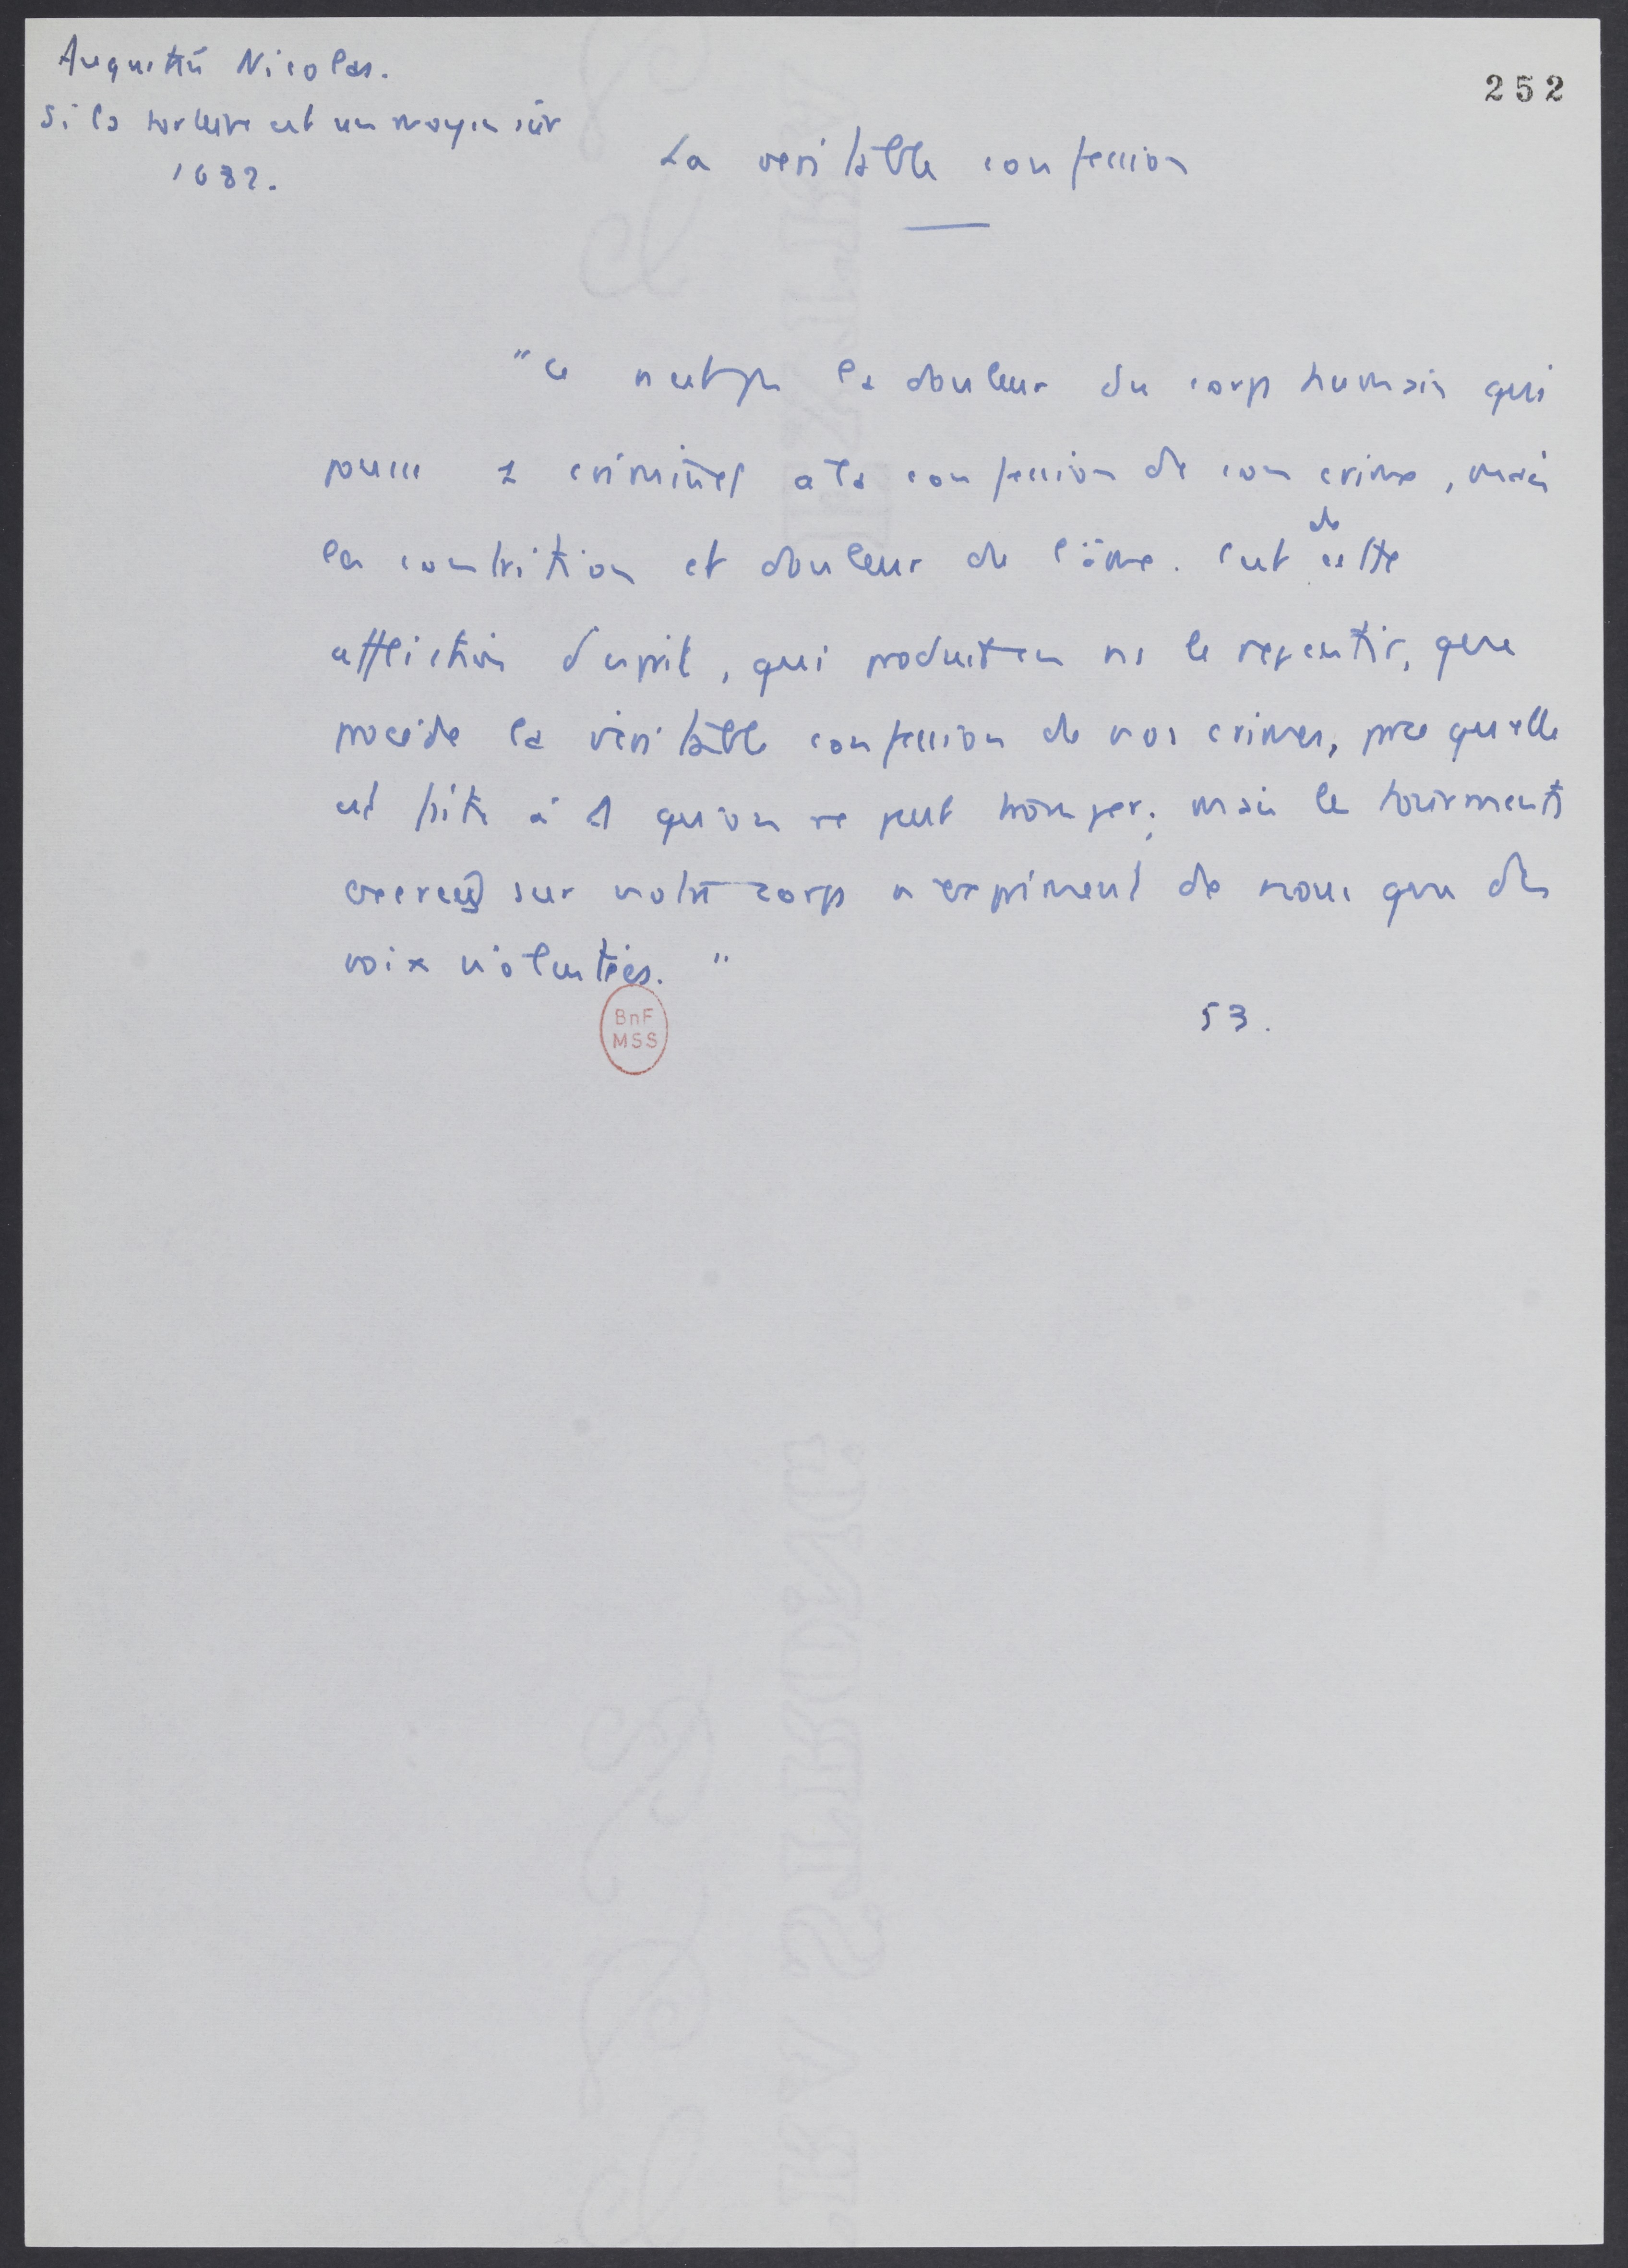 Augustin Nicolas.
Si la torture est un moyen sûr
1682.
252
La véritable confession
"Ce n'est pas la douleur du corps humain qui
pousse 1 criminel à la confession de son crime, mais
la contrition et douleur de l'âme. C'est de cette
affliction d'esprit, qui produit en ns le repentir, que
procède la véritable confession de nos crimes, parce qu'elle
est faite à 1 qu'on ne peut tromper; mais les tourments
exercés sur notre corps n'expriment de nous que des
voix violentées."
53.
BnF
MSS